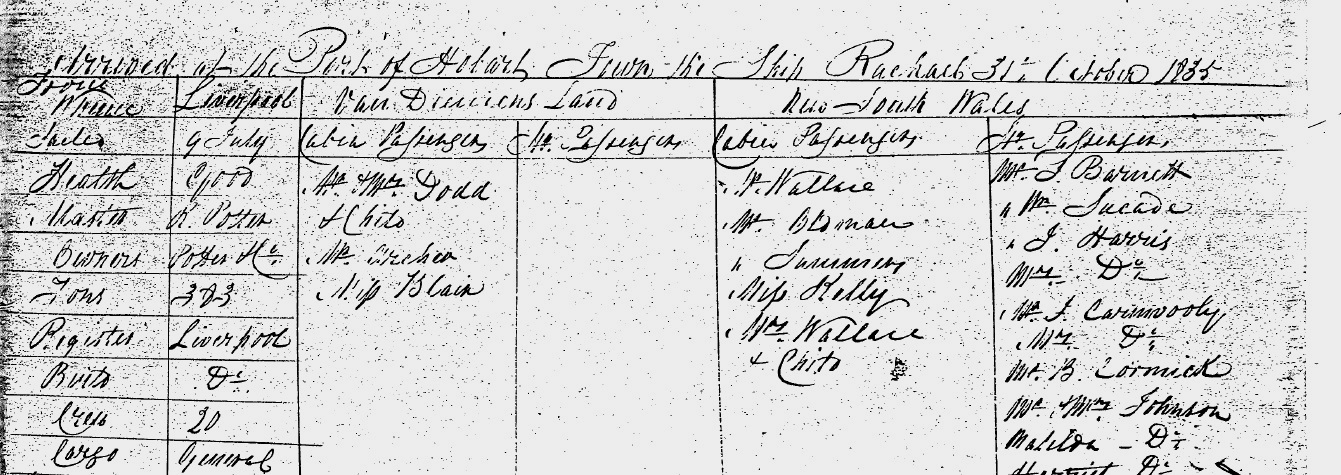 Arrived at the Port of Hobart Town the Ship Rachael 31st October 1835
From Whence Liverpool
Sailed 9 July
Health Good
Master R. Potter
Owners Potter & Co.
Tons 383
Register Liverpool
Built Do.
Crew 20
Cargo General
Van Diemens Land
Cabin Passengers
Mr & Mrs Dodd
& Child
Mr Archer
Miss Blair
St. Passengers
New South Wales
Cabin Passengers
Mr. Wallace
Mr.
"
Miss Kelly
Mrs. Wallace
& Child
St. Passengers
Mr. J Barnett
" Wm.
" J. Harris
Mrs. Do.
Mr. J.
Mrs. Do.
Mr. B. Cormick
Mr. & Mrs. Johnson
Matilda - Do.
Harriet Do.